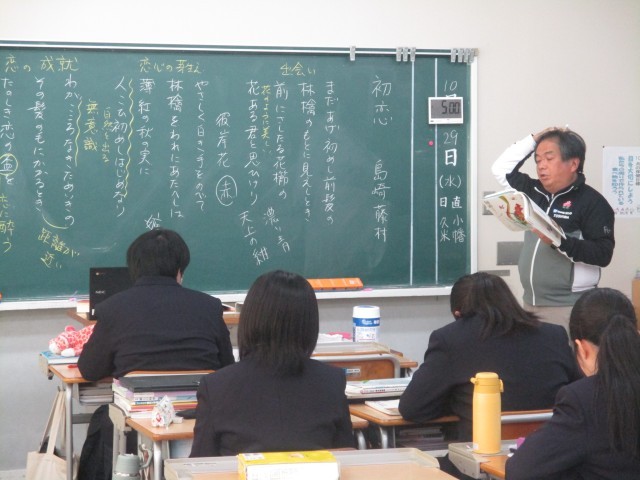 10
29
日
(水)
日直
小幡
久米
5:00
初恋
島崎藤村
出会い
まだあげ初めし前髪の
林檎のもとに見えしとき
前にさしたる花櫛の
花ある君と思ひけり
彼岸花
赤
濃い青
天上の紺
恋心の芽生え
やさしく白き手をのべて
林檎をわれにあたへしは
薄紅の秋の実に
人こひ初めしはじめなり
自然と出る
無意識
恋の成就
わがこころなきためいきの
その髪の毛にかかるとき
たのしき恋の盃を
距離が近い
恋に酔う